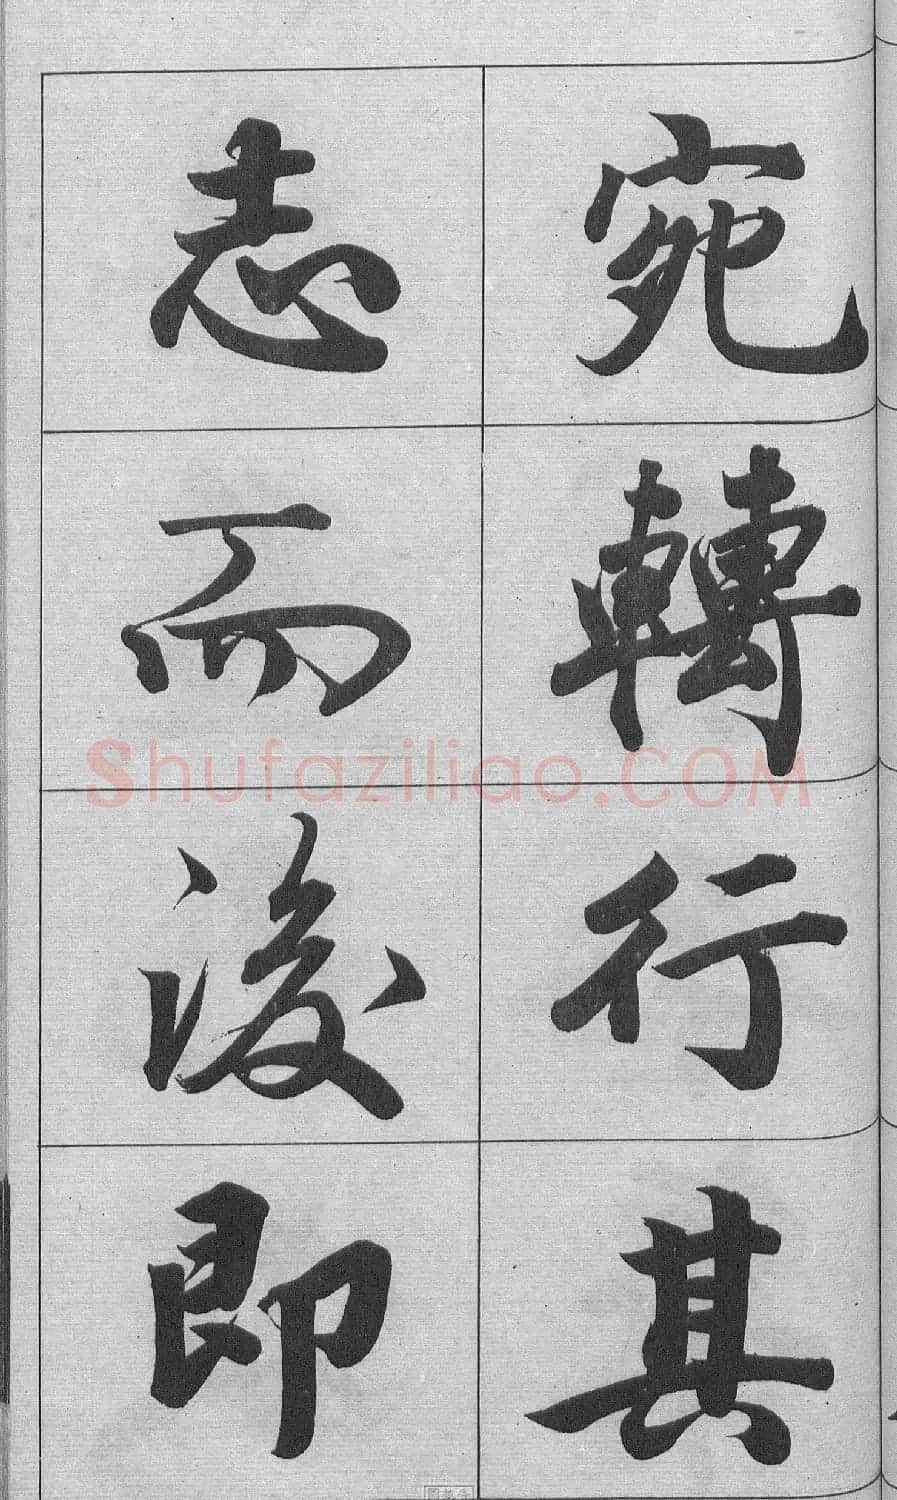 宛轉行其
志而後即
Shufaziliao.COM